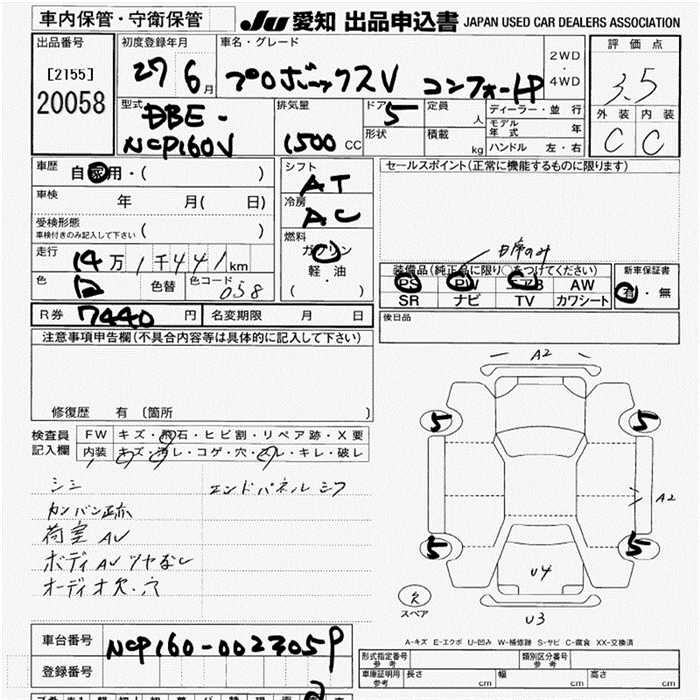 車内保管・守衛保管
Ju 愛知 出品申込書 JAPAN USED CAR DEALERS ASSOCIATION
出品番号
[2155]
20058
初度登録年月
27 6月
車名・グレード
プロボックスV コンフォートP
2WD
・
4WD
評価点
3.5
外装 内装
C C
型式
DBE-
NCP160V
排気量
1500 CC
ドア 5
形状
定員
人
積載
kg
ディーラー・並行
モデル年式 年
ハンドル 左・右
車歴 自家用・( )
車検 年 月( 日)
受検形態
車検付きのみ記入して下さい ( )
走行 14万1千441km
色 白 色替 色コード 058
シフト
AT
冷房
AC
燃料
ガソリン
軽油
( ・ )
セールスポイント(正常に機能するものに限ります)
D席のみ
装備品(純正品に限り○をつけてください)
PS PW エアB AW
SR ナビ TV カワシート
新車保証書
有・無
後日品
R券 7440円 名変期限 月 日
注意事項申告欄(不具合内容等は具体的に記入して下さい)
修復歴 有 〔箇所 〕
検査員
記入欄
FW キズ・飛石・ヒビ割・リペア跡・X要
内装 キズ・汚レ・コゲ・穴・スレ・キレ・破レ
シミ
カンバン跡
荷室AU
ボディAUツヤなし
オーディオ欠・穴
エンドパネルミフ
A2
5 5
A2
5 5
U4
欠
スペア
U3
A-キズ E-エクボ U-凹み W-補修跡 S-サビ C-腐食 XX-交換済
車台番号 NCP160-002705P
登録番号
形式指定番号
参考
類別区分番号
参考
車庫証明用
参考
長さ cm 幅 cm 高さ cm